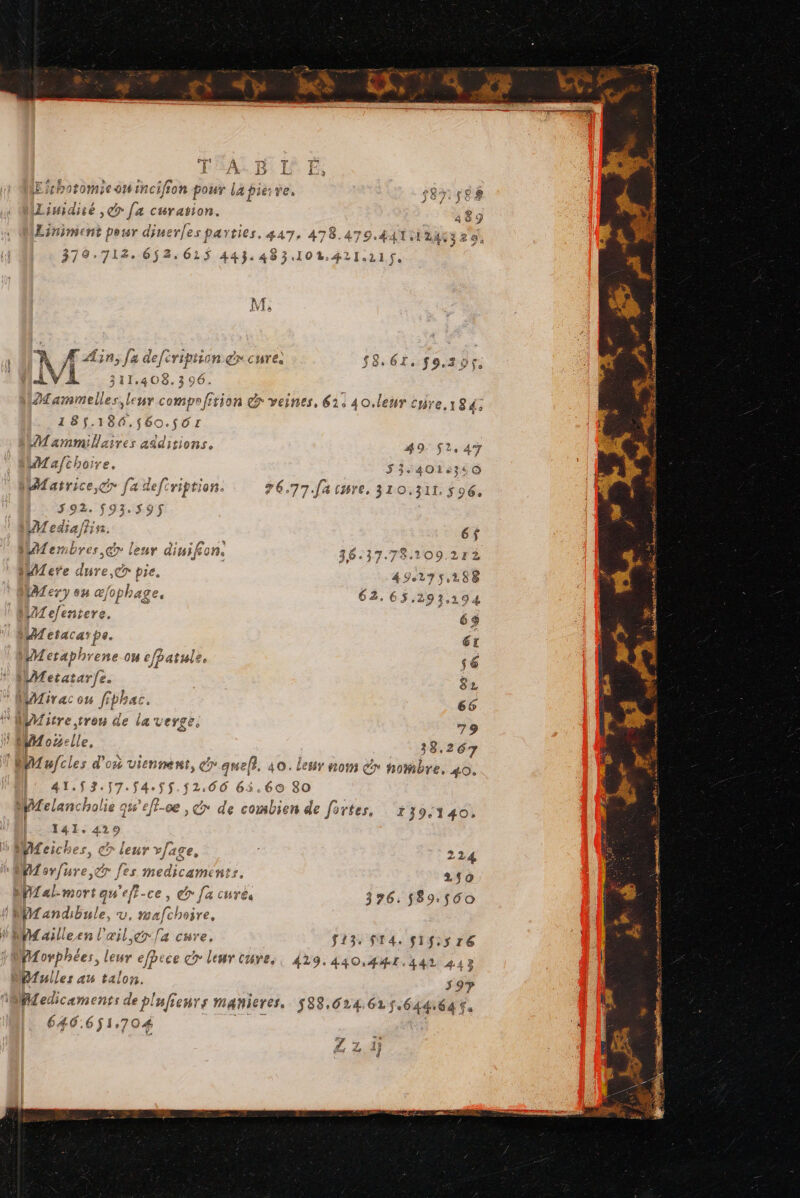 TABLE,
Lithotomie ou incision pour la pierre. 587. 588
Liuidité, & sa curation. 489
Liniment pour diuerses parties. 447. 478. 479. 441. 124. 329.
370. 712. 652. 615 443. 483. 102. 421. 215.
M.
MAin, sa description & cure. 58. 61. 59. 205.
311. 408. 396.
Mammelles, leur composition & veines. 62. 40. leur cure. 184.
185. 186. 560. 561
Mammillaires additions. 49 52. 47
Maschoire. 53. 401. 350
Matrice, & sa description. 76. 77. sa cure. 310. 311. 596.
592. 593. 595
Mediastin. 65
Membres, & leur diuision. 36. 37. 78. 209. 212
Mere dure, & pie. 49. 275. 288
Mery ou œsophage. 62. 65. 293. 294
Mesentere. 69
Metacarpe. 61
Metaphrene ou espatule. 56
Metatarse. 82
Mirac ou siphac. 66
Mitre, trou de la verge. 79
Moüelle. 38. 267
Muscles d'où viennent, & quest. 40. leur nom & nombre. 40.
41. 53. 57. 54. 55. 52. 66 63. 60 80
Melancholie qu'est-ce, & de combien de sortes. 139. 140.
141. 429
Meiches, & leur vsage. 224
Morsure, & ses medicaments. 250
Mal-mort qu'est-ce, & sa cure. 376. 589. 560
Mandibule, v. maschoire.
Maille en l'œil, & sa cure. 513. 514. 515. 516
Morphées, leur espece & leur cure. 429. 440. 441. 442 443
Mulles au talon. 597
Medicaments de plusieurs manieres. 588. 624. 625. 644. 645.
646. 651. 704
Zz ij